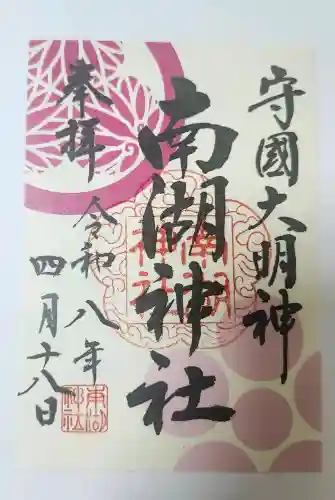 守國大明神
南湖神社
奉拝
令和八年
四月十八日
南湖
神社